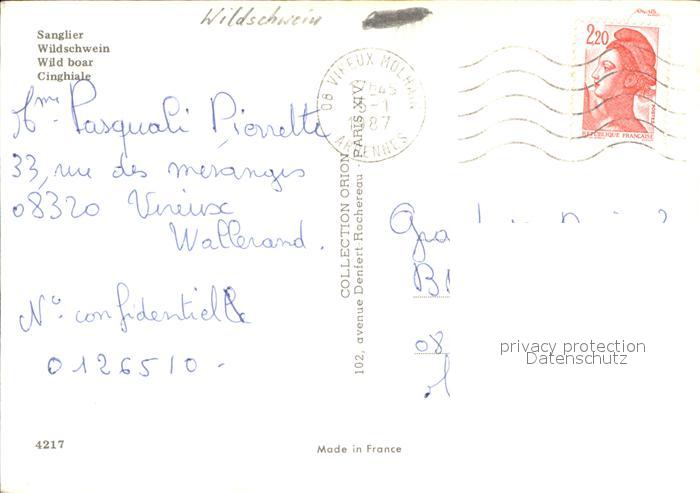 Wildschwein
Sanglier
Wildschwein
Wild boar
Cinghiale
Mme Pasquali Pierrette
33, rue des mésanges
08320 Vireux
Wallerand.
N° confidentielle
0126510 -
08 VIREUX MOLHAIN
1987
ARDENNES
2,20
REPUBLIQUE FRANÇAISE
COLLECTION ORION
102, avenue Denfert-Rochereau - PARIS XIV
Gra
08
privacy protection
Datenschutz
4217
Made in France